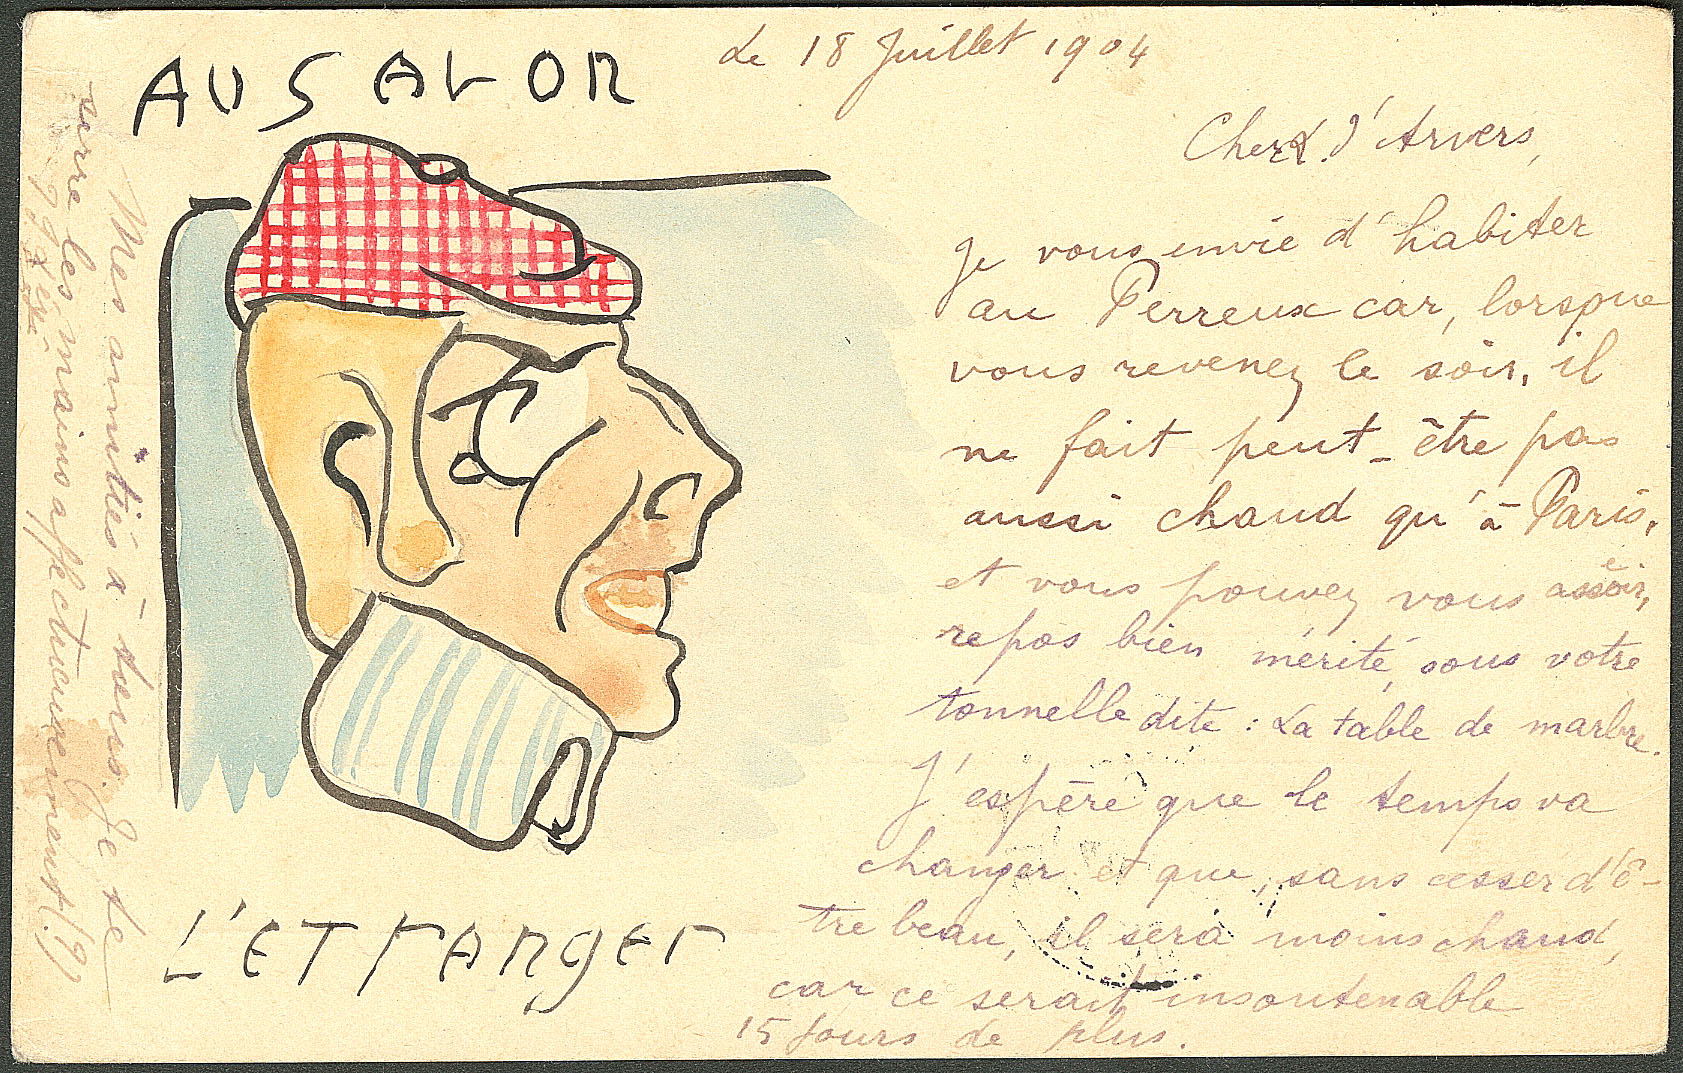 AU SALON
L'ETranger
le 18 Juillet 1904
Cher d'Arvers,
Je vous envie d'habiter
au Perreux car, lorsque
vous revenez le soir, il
ne fait peut-être pas
aussi chaud qu'à Paris,
et vous pouvez vous assoir,
repos bien mérité, sous votre
tonnelle dite : La table de marbre.
J'espère que le temps va
changer et que, sans cesser d'ê-
tre beau, il sera moins chaud,
car ce serait insoutenable
15 jours de plus.
Mes amitiés à tous. Je te
serre les mains affectueusement (?)